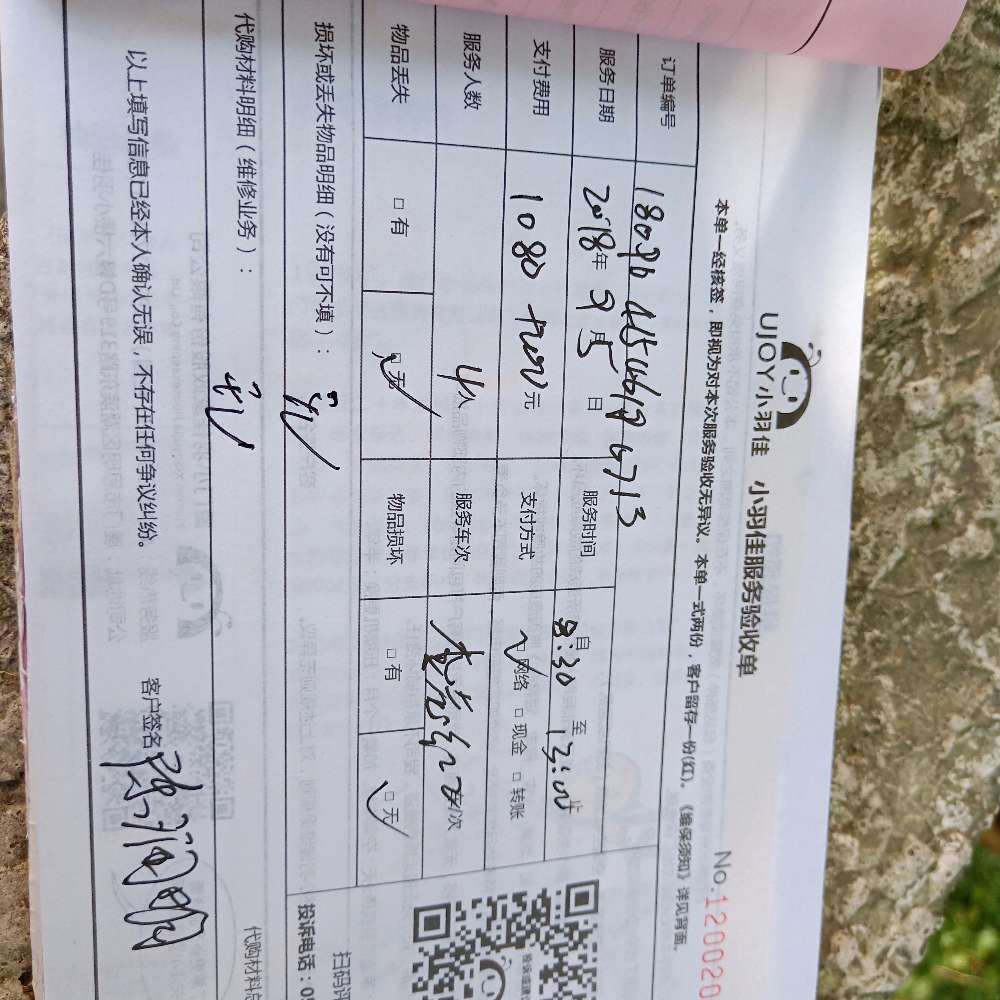 UJOY小羽佳 小羽佳服务验收单
No.120020
本单一经核签，即视为对本次服务验收无异议。本单一式两份，客户留存一份(红)。《维保须知》详见背面。
订单编号
服务日期 2018年 9月5日 服务时间 自8:30 至13:00止
支付费用 1080 元 支付方式 □网络 □现金 □转账
服务人数 4人 服务车次 车/次
物品丢失 □有 □无 物品损坏 □有 □无
损坏或丢失物品明细（没有可不填）： 无
扫码评
投诉电话：05
代购材料明细（维修业务）： 无
代购材料总
以上填写信息已经本人确认无误，不存在任何争议纠纷。 客户签名